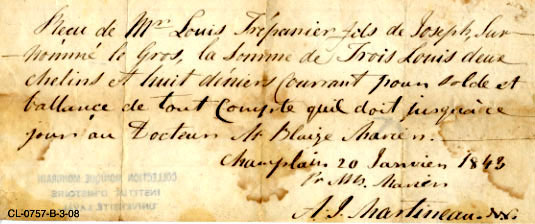 Recu de Mr. Louis Trépanier fils de Joseph, Sur-
nommé le Gros, la Somme de Trois Louis deux
chelins et huit deniers Courrant pour solde et
ballance de tout Compte qu'il doit jusqu'à ce
jour au Docteur M. Blaize Marien.
Champlain 20 Janvier 1843
Pr M B. Marien
A. J. Martineau
COLLECTION MONIQUE MOHRBAIN
INSTITUT D'HISTOIRE
UNIVERSITÉ LAVAL
CL-0757-B-3-08